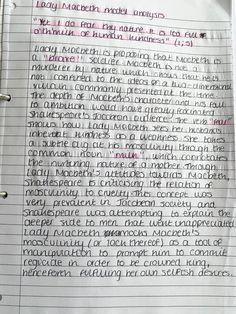 Lady Macbeth model analysis
"Yet I do fear thy nature it is too full
o'th'milk of human kindness" (1,5)
Lady Macbeth is proposing that Macbeth is
a soldier. Macbeth is not a
murderer by nature which shows that he is
not confined to the ideas of a two-dimensional
villain commonly presented at the time.
The depth of Macbeth's character and his
to ambition would have greatly fascinated
Shakespeare's Jacobean audience. The verb "fear"
shows how Lady Macbeth sees her husband's
inherent kindness as a weakness. She takes
a subtle dig at his masculinity through the
common noun "milk" which contributes
the nurturing nature of a mother. Through
Lady Macbeth's attitudes towards Macbeth
Shakespeare is criticising the relation of
masculinity to cruelty. This concept was
very prevalent in Jacobean society and
Shakespeare was attempting to explain the
deeper side to men that went unappreciated
Lady Macbeth Macbeth's
masculinity (or lack thereof) as a tool of
manipulation to prompt him to commit
regicide in order to be crowned king,
henceforth fulfilling her own selfish desires.